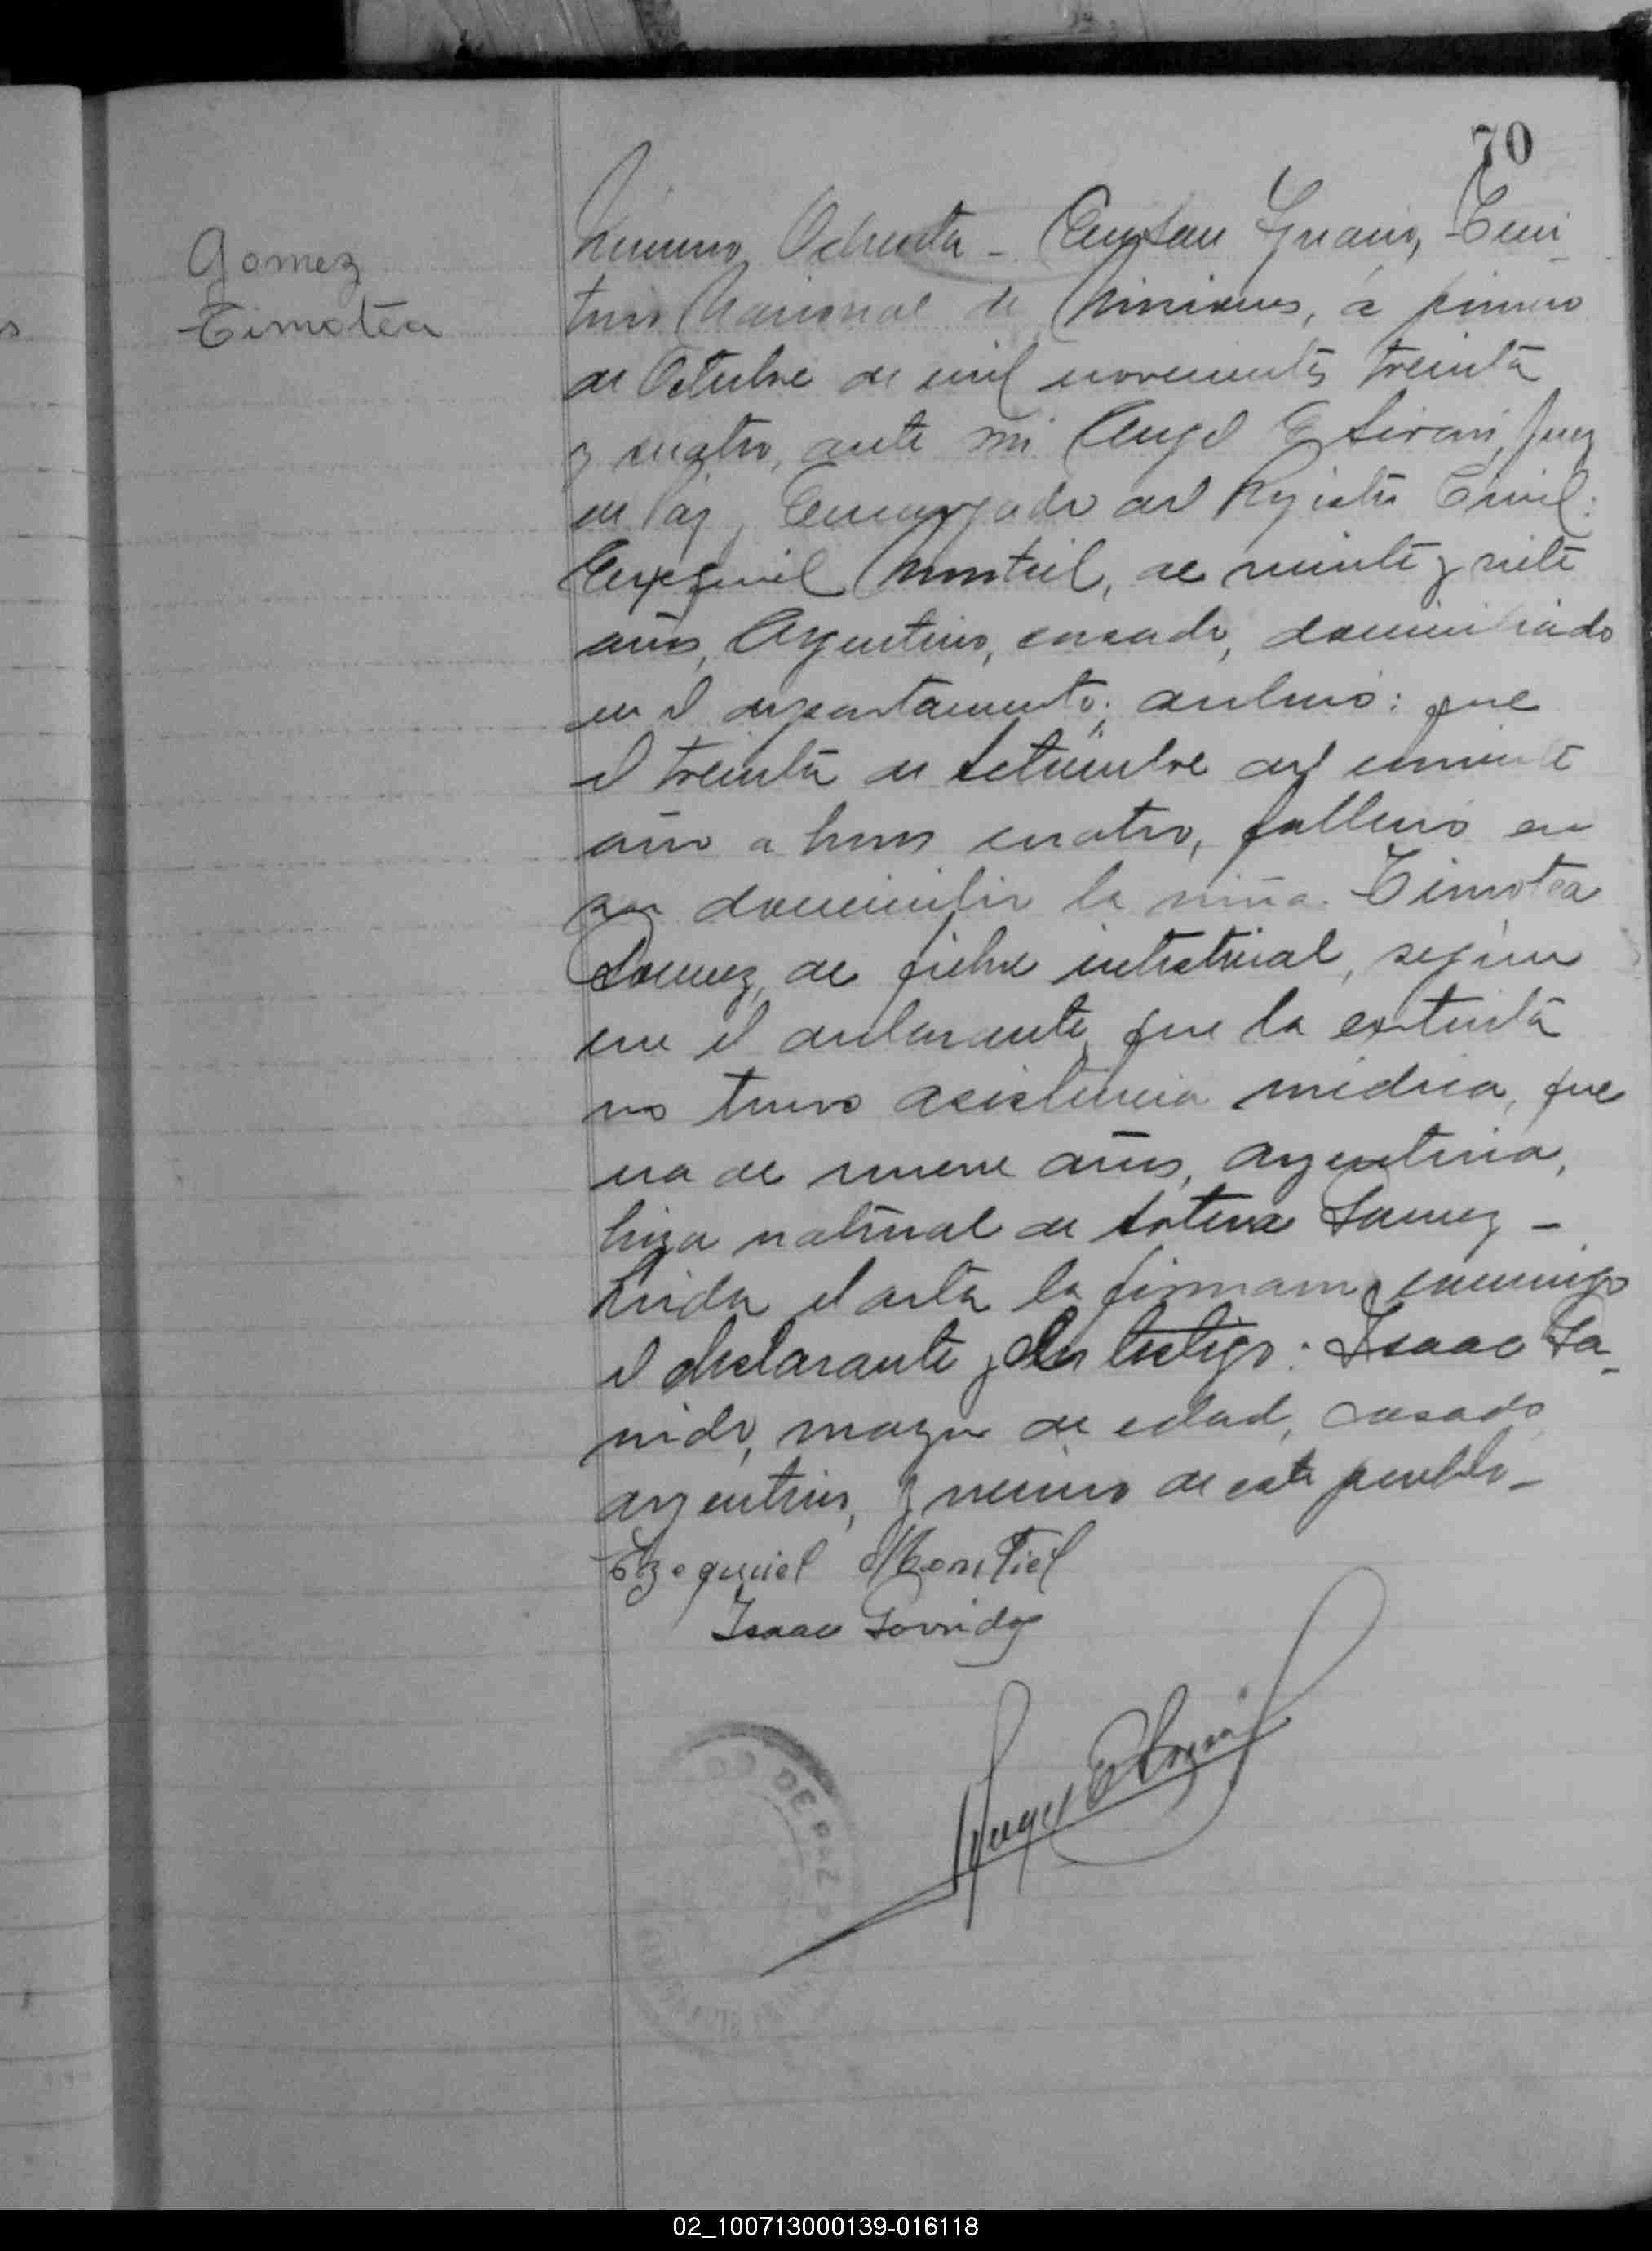 70
Gomez
Timotea
Número Ochenta - San Ignacio, Terri-
torio Nacional de Misiones, a primero
de Octubre de mil novecientos treinta
y cuatro, ante mi Angel E. Juez
de Paz, Encargado del Registro Civil:
Ezequiel Montiel, de veinte y siete
años, Argentino, casado, domiciliado
en el departamento; declaró: que
el treinta de Setiembre del corriente
año a horas cuatro, falleció en
su domicilio la niña Timotea
Gomez, de fiebre intestinal, según
cree el declarante, que la extinta
no tuvo asistencia médica, que
era de nueve años, argentina,
hija natural de Gomez -
Leida el acta la firmaron conmigo
el declarante y el testigo: Isaac Ga-
rrido, mayor de edad, casado
argentino, y vecino de este pueblo -
Ezequiel Montiel
Isaac Garrido
Angel E
DE PAZ
02_100713000139-016118